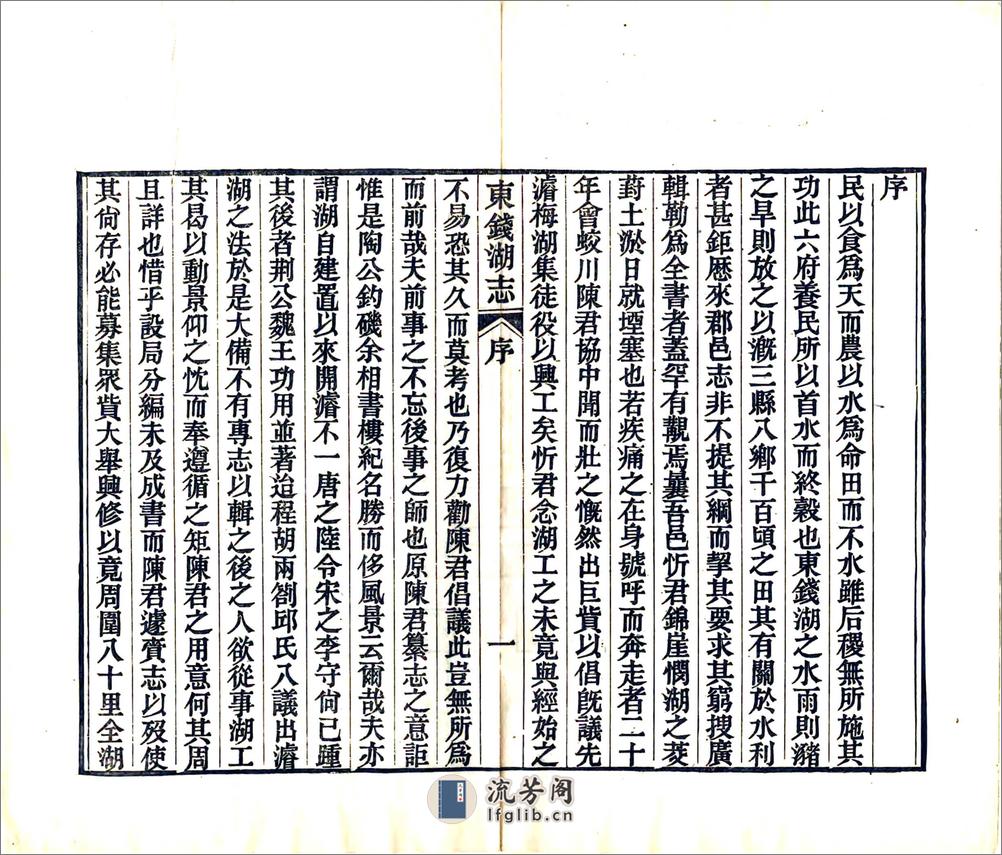 序
民以食爲天而農以水爲命田而不水雖后稷無所施其
功此六府養民所以首水而終穀也東錢湖之水雨則豬
之旱則放之以溉三縣八鄉千百頃之田其有關於水利
者甚鉅歷來郡邑志非不提其綱而挈其要求其窮搜廣
輯勒爲全書者蓋罕有觀焉曩吾邑忻君錦崖憫湖之茭
葑土淤日就堙塞也若疾痛之在身號呼而奔走者二十
年會蛟川陳君協中聞而壯之慨然出巨貲以倡旣議先
濬梅湖集徒役以興工矣忻君念湖工之未竟與經始之
東錢湖志 序 一
不易恐其久而莫考也乃復力勸陳君倡議此豈無所爲
而前哉夫前事之不忘後事之師也原陳君纂志之意詎
惟是陶公釣磯余相書樓紀名勝而侈風景云爾哉夫亦
謂湖自建置以來開濬不一唐之陸令宋之李守尙已踵
其後者荆公魏王功用並著迨程胡兩劄邱氏八議出濬
湖之法於是大備不有專志以輯之後之人欲從事湖工
其曷以動景仰之忱而奉遵循之矩陳君之用意何其周
且詳也惜乎設局分編未及成書而陳君遽齎志以歿使
其尙存必能募集眾貲大舉興修以竟周圍八十里全湖
流芳阁
lfglib.cn